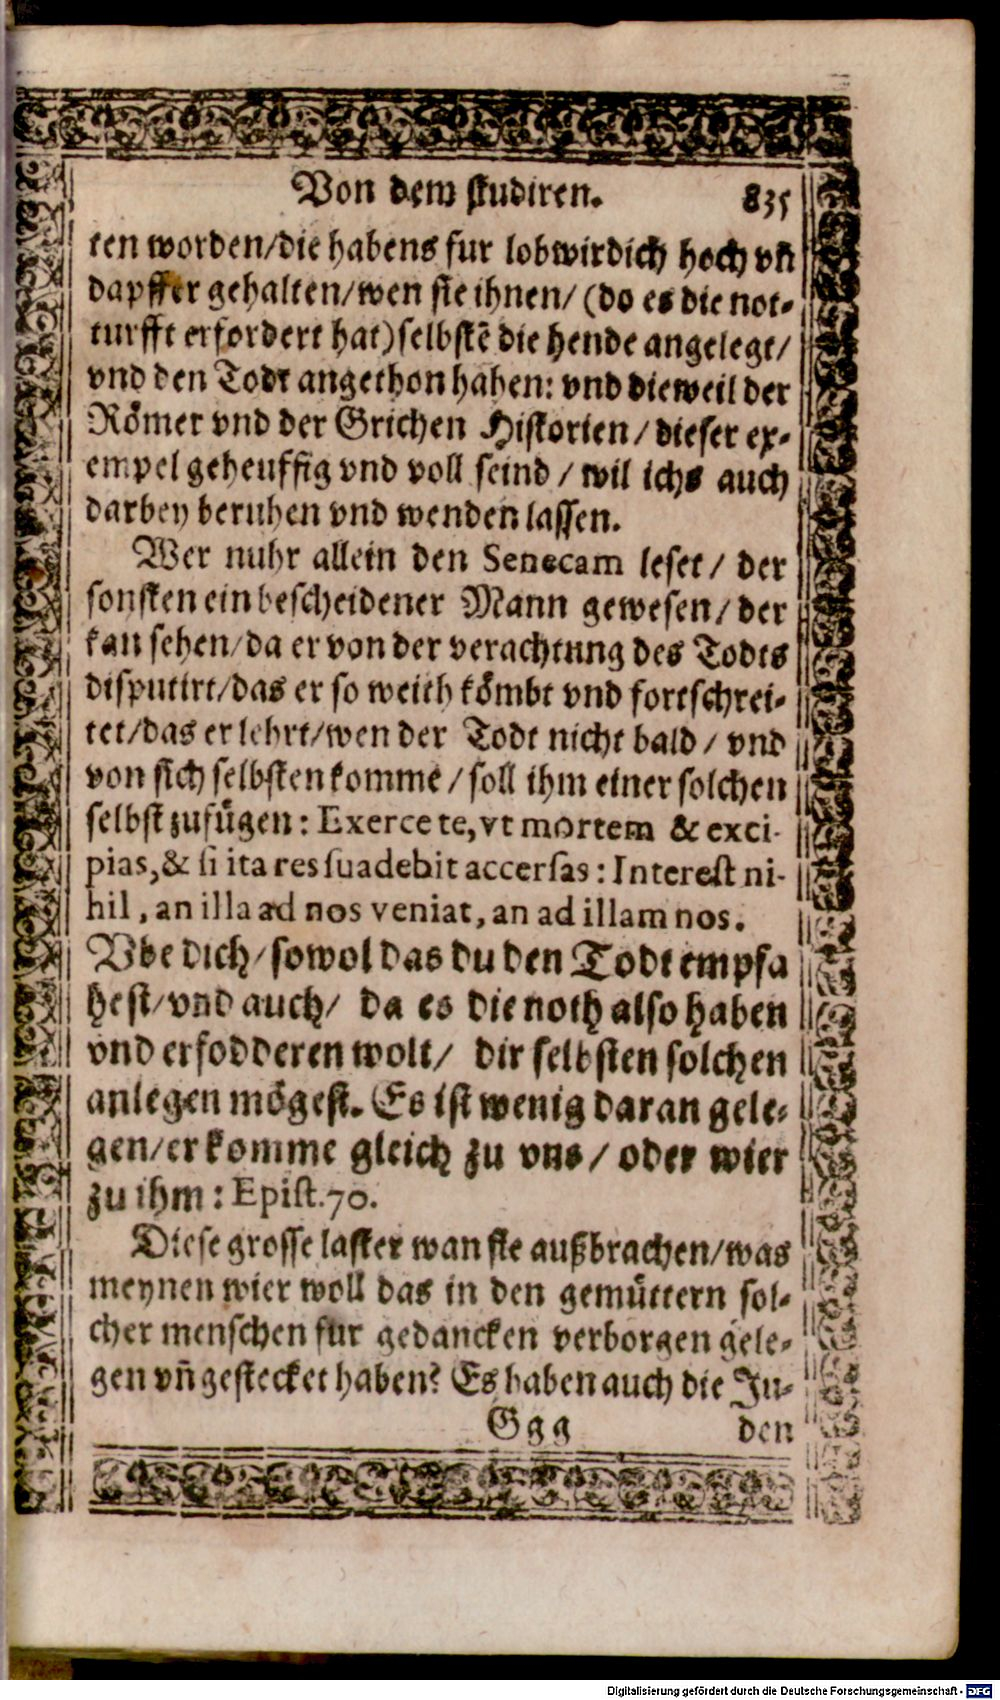 Von dem studiren. 835
ten worden/die habens fur lobwirdich hoch vñ
dapffer gehalten/wen sie ihnen/ (do es die not-
turfft erfordert hat) selbstē die hende angelegt/
vnd den Todt angethon haben: vnd dieweil der
Römer vnd der Grichen Historien / dieser ex-
empel geheuffig vnd voll seind / wil ichs auch
darbey beruhen vnd wenden lassen.
Wer nuhr allein den Senecam leset / der
sonsten ein bescheidener Mann gewesen / der
kan sehen/da er von der verachtung des Todts
disputirt/das er so weith kömbt vnd fortschrei-
tet/das er lehrt/wen der Todt nicht bald / vnd
von sich selbsten komme / soll ihm einer solchen
selbst zufügen: Exerce te, vt mortem & exci-
pias, & si ita res suadebit accersas: Interest ni-
hil, an illa ad nos veniat, an ad illam nos.
Vbe dich/sowol das du den Todt empfa
hest/vnd auch/ da es die noth also haben
vnd erfodderen wolt/ dir selbsten solchen
anlegen mögest. Es ist wenig daran gele-
gen/er komme gleich zu vns / oder wier
zu ihm: Epist. 70.
Diese grosse laster wan sie außbrachen/was
meynen wier woll das in den gemüttern sol-
cher menschen fur gedancken verborgen gele-
gen vñ gestecket haben? Es haben auch die Ju-
Ggg den
Digitalisierung gefördert durch die Deutsche Forschungsgemeinschaft - DFG